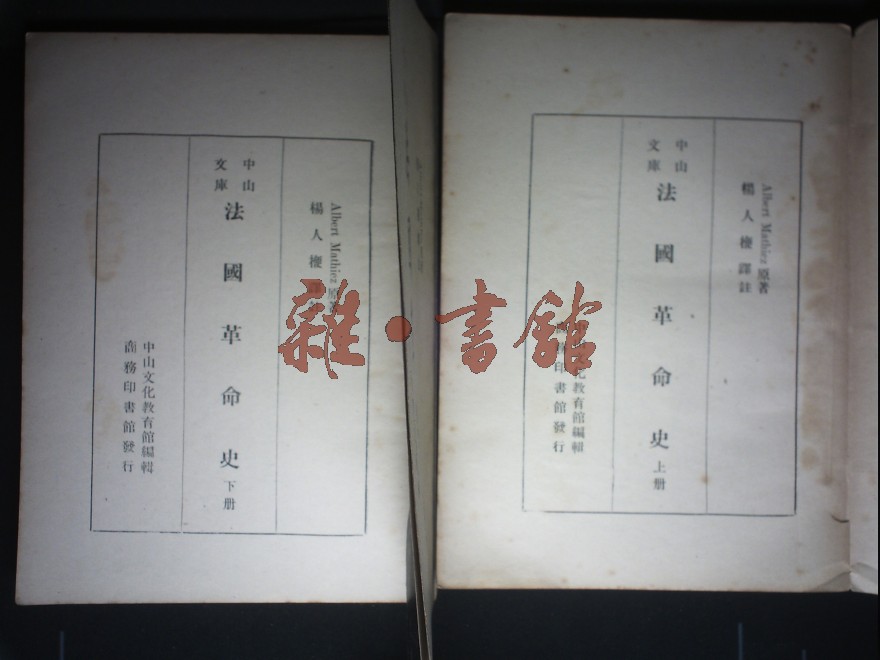 Albert Mathiez 原著
楊人楩譯註
中山
文庫
法國革命史 上册
中山文化教育館編輯
商務印書館發行
Albert Mathiez 原著
楊人楩譯註
中山
文庫
法國革命史 下册
中山文化教育館編輯
商務印書館發行
雜·書館